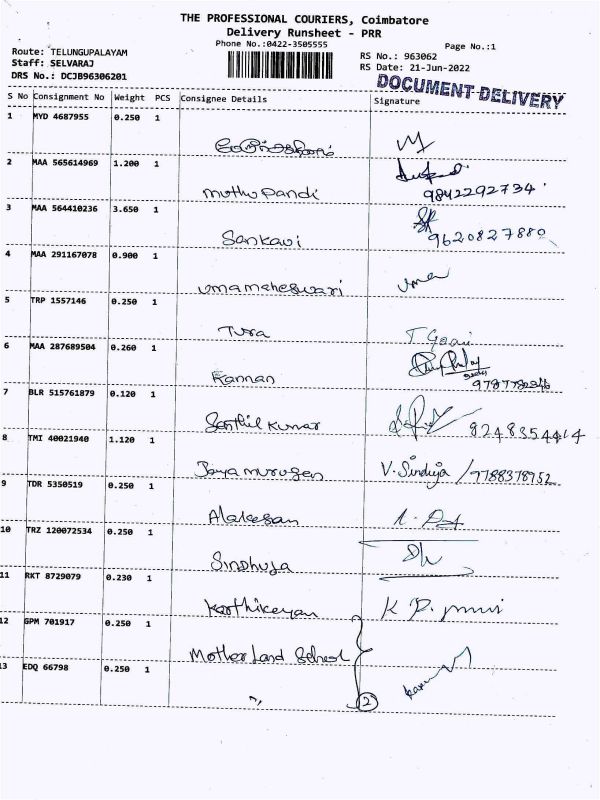 THE PROFESSIONAL COURIERS, Coimbatore
Delivery Runsheet - PRR
Phone No.:0422-3505555
Page No.:1
Route: TELUNGUPALAYAM
RS No.: 963062
Staff: SELVARAJ
RS Date: 21-Jun-2022
DRS No.: DCJB96306201
DOCUMENT DELIVERY
S No Consignment No Weight PCS Consignee Details Signature
1 MYD 4687955 0.250 1
2 MAA 565614969 1.200 1
muthu pandi 9842292734
3 MAA 564410236 3.650 1
Sankavi 9620827880
4 MAA 291167078 0.900 1
umamaheswari uma
5 TRP 1557146 0.250 1
Tusa T. Gowri
6 MAA 287689504 0.260 1
Kannan
7 BLR 515761879 0.120 1
Senthil Kumar 8248354414
8 TMI 40021940 1.120 1
Jayamurugan V. Sinduja / 9788378952
9 TDR 5350519 0.250 1
Alakesan
10 TRZ 120072534 0.250 1
Sindhuja
11 RKT 8729079 0.230 1
Karthikeyan K P.
12 GPM 701917 0.250 1
Mother Land School
13 EDQ 66798 0.250 1
2